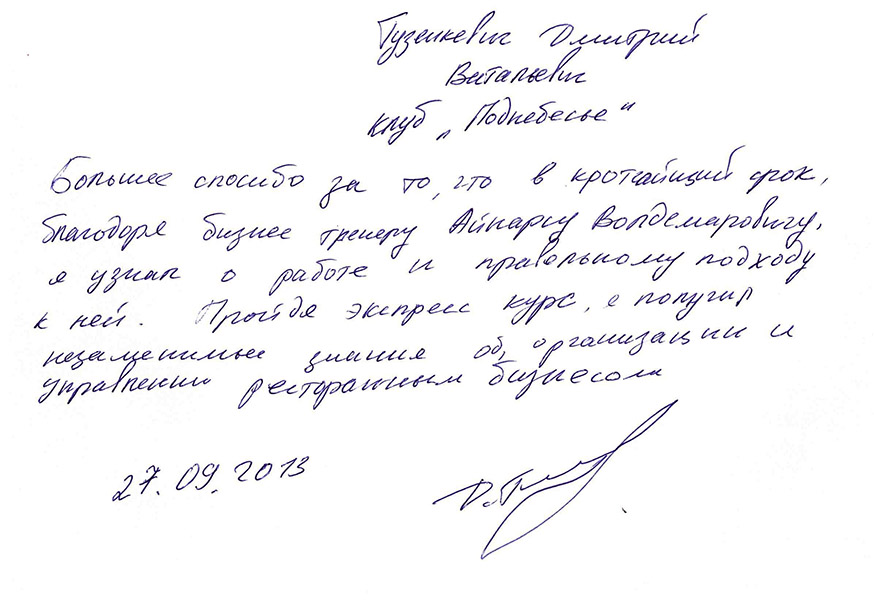 Гузенкевич Дмитрий
Витальевич
клуб „Поднебесье“
Большее спосибо за то, что в кротчайщий срок,
благодоря бизнес тренеру Айнарсу Волдемаровичу,
я узнал о работе и правельному подходу
к ней. Пройдя экспресс курс, я получил
незаменимые знания об, организации и
управлении ресторанным бизнесом
27.09.2013